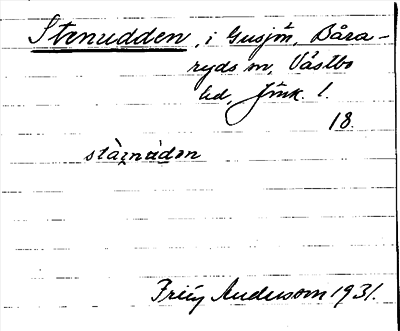 Stenudden, i Gusjön, Båra-
ryds sn, Västbo
hd, Jönk. l.
18.
stàɪnùdən
Fritz Andersson 1931.